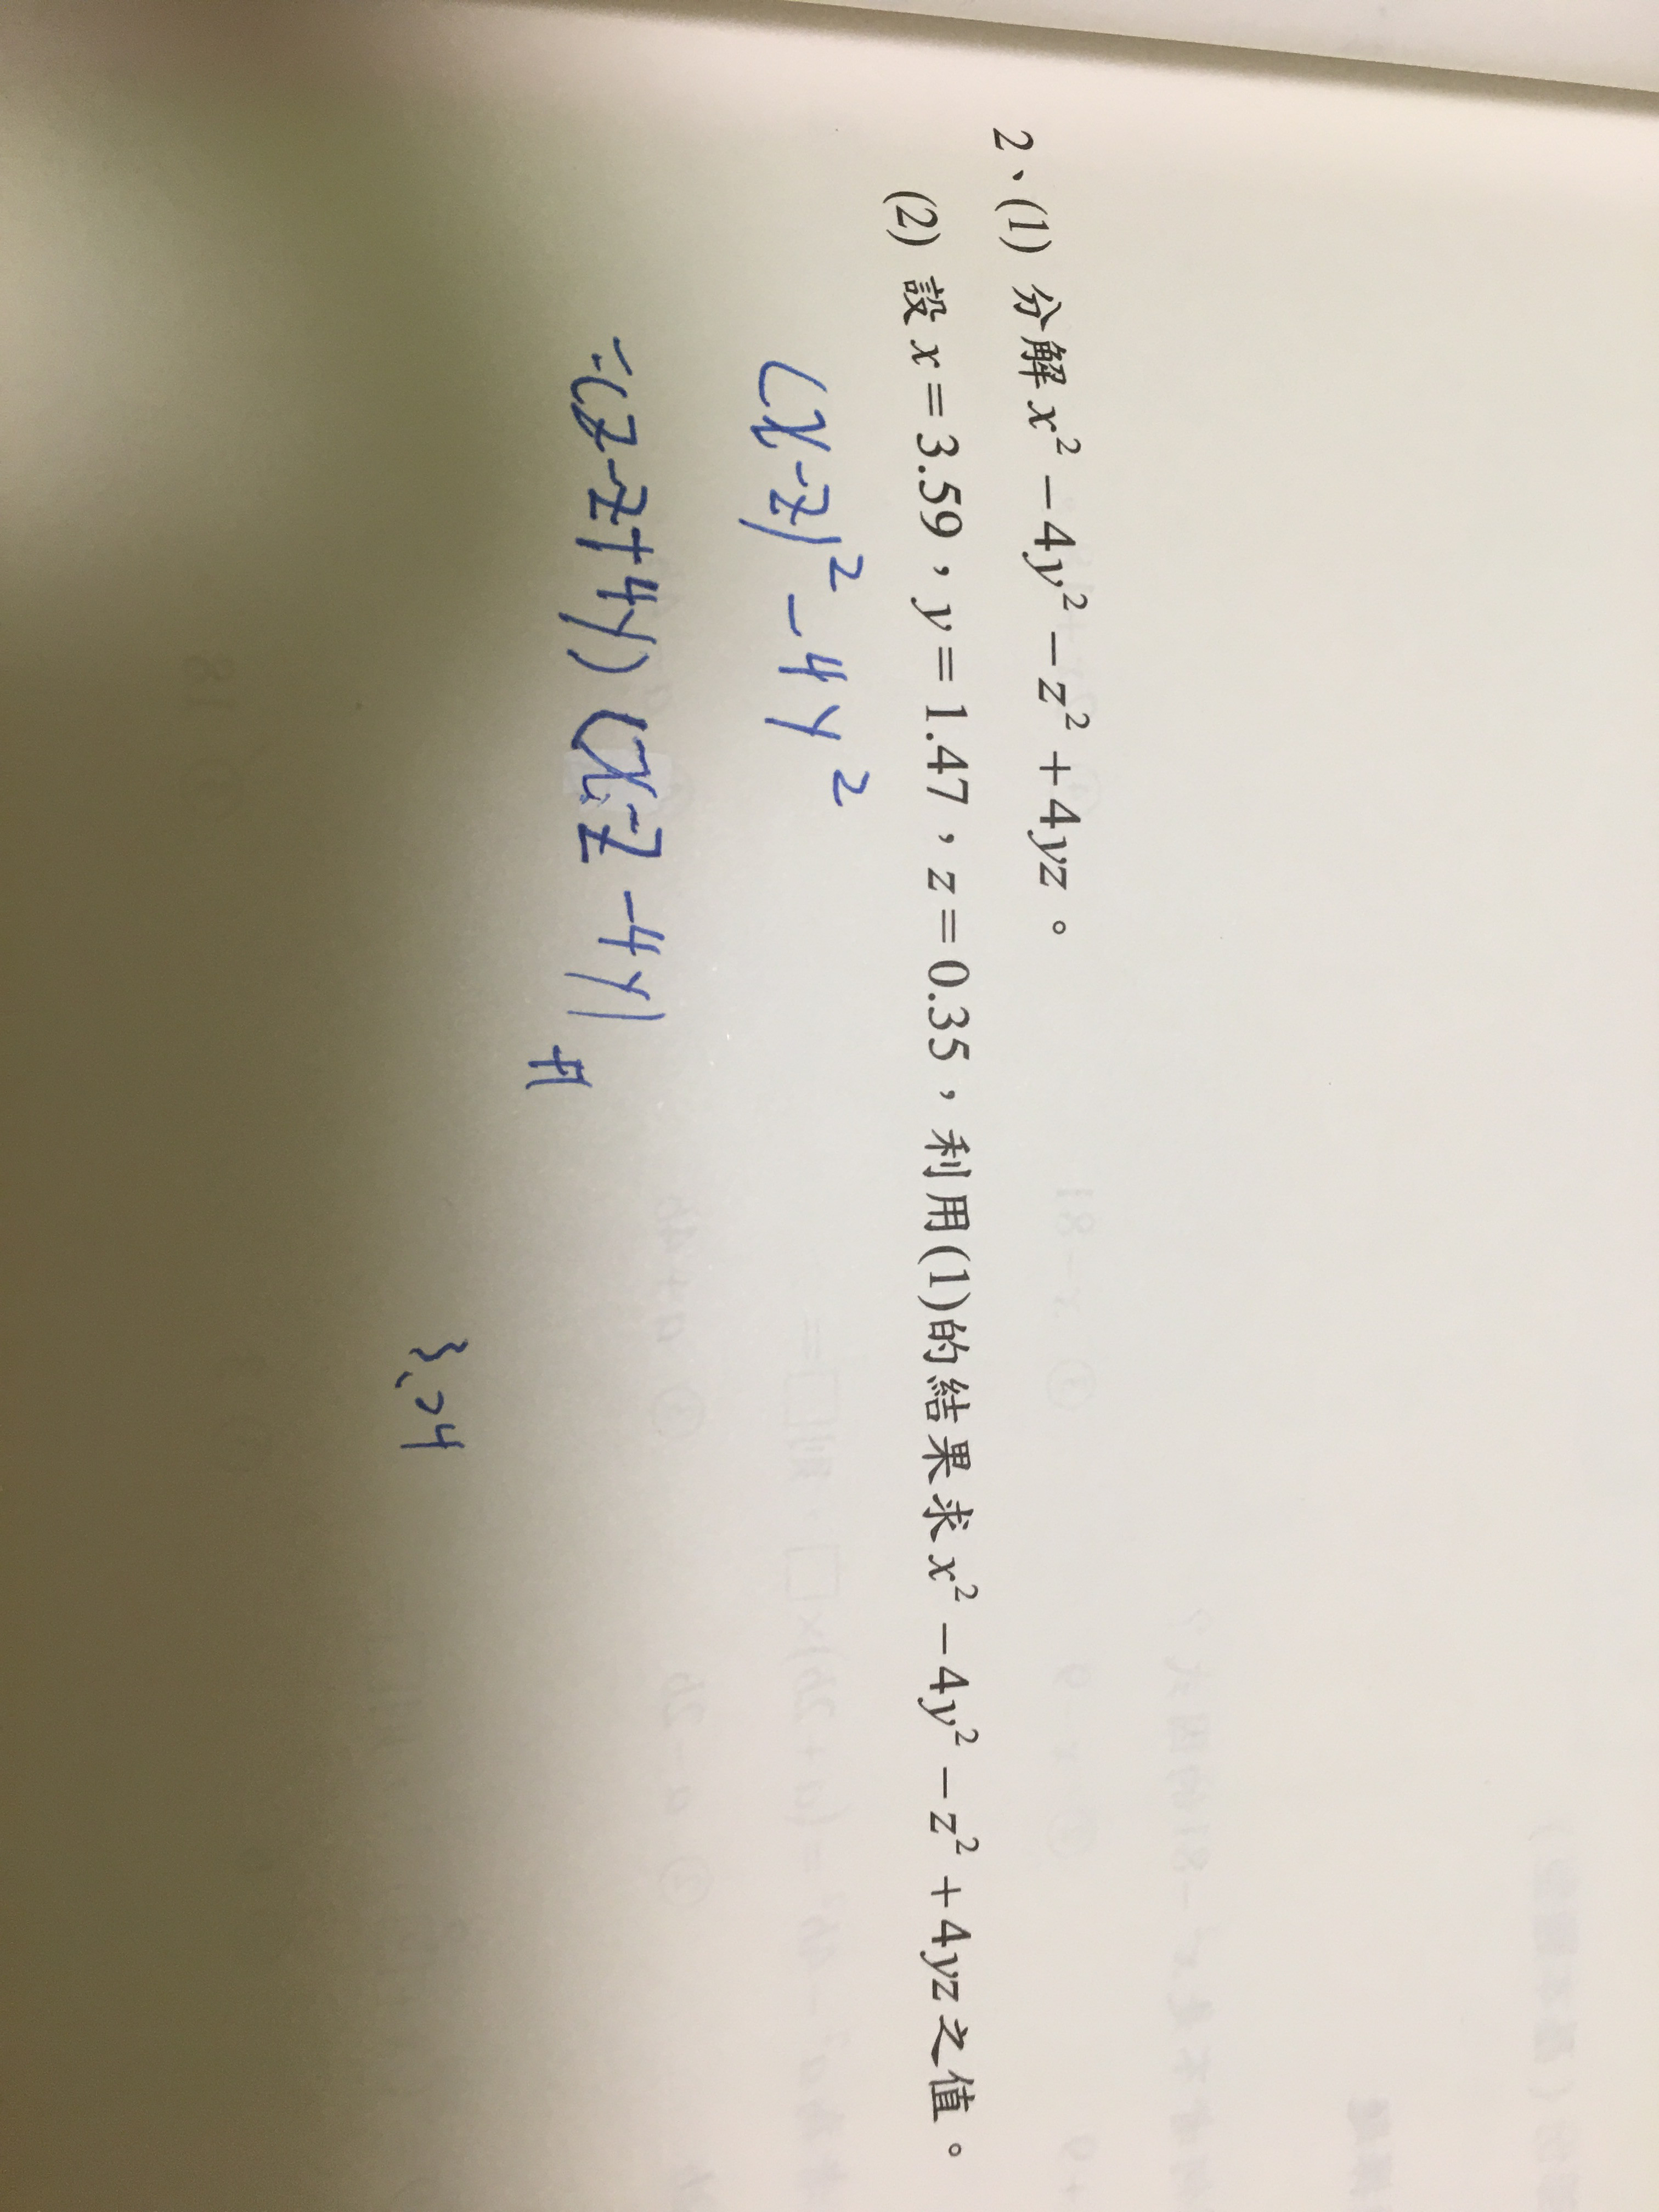 2、(1) 分解x² − 4y² − z² + 4yz。
(2) 設x = 3.59，y = 1.47，z = 0.35，利用(1)的結果求x² − 4y² − z² + 4yz之值。
(x-z)² - 4y²
=(z-z+4y)(x-z-4y)
3.24